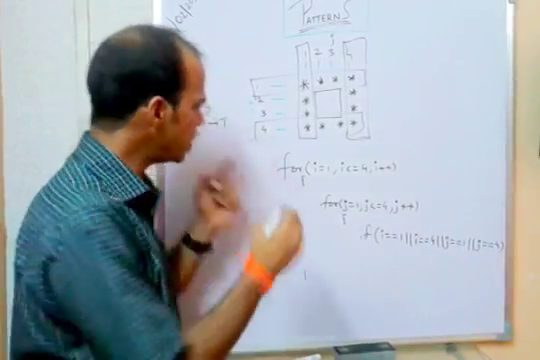 PATTERNS
j
1 2 3 4
* * * *
2 * *
3 * *
4 * * * *
for(i=1, i<=4, i++)
{
for(j=1, j<=4, j++)
{
if(i==1||i==4||j==1||j==4)